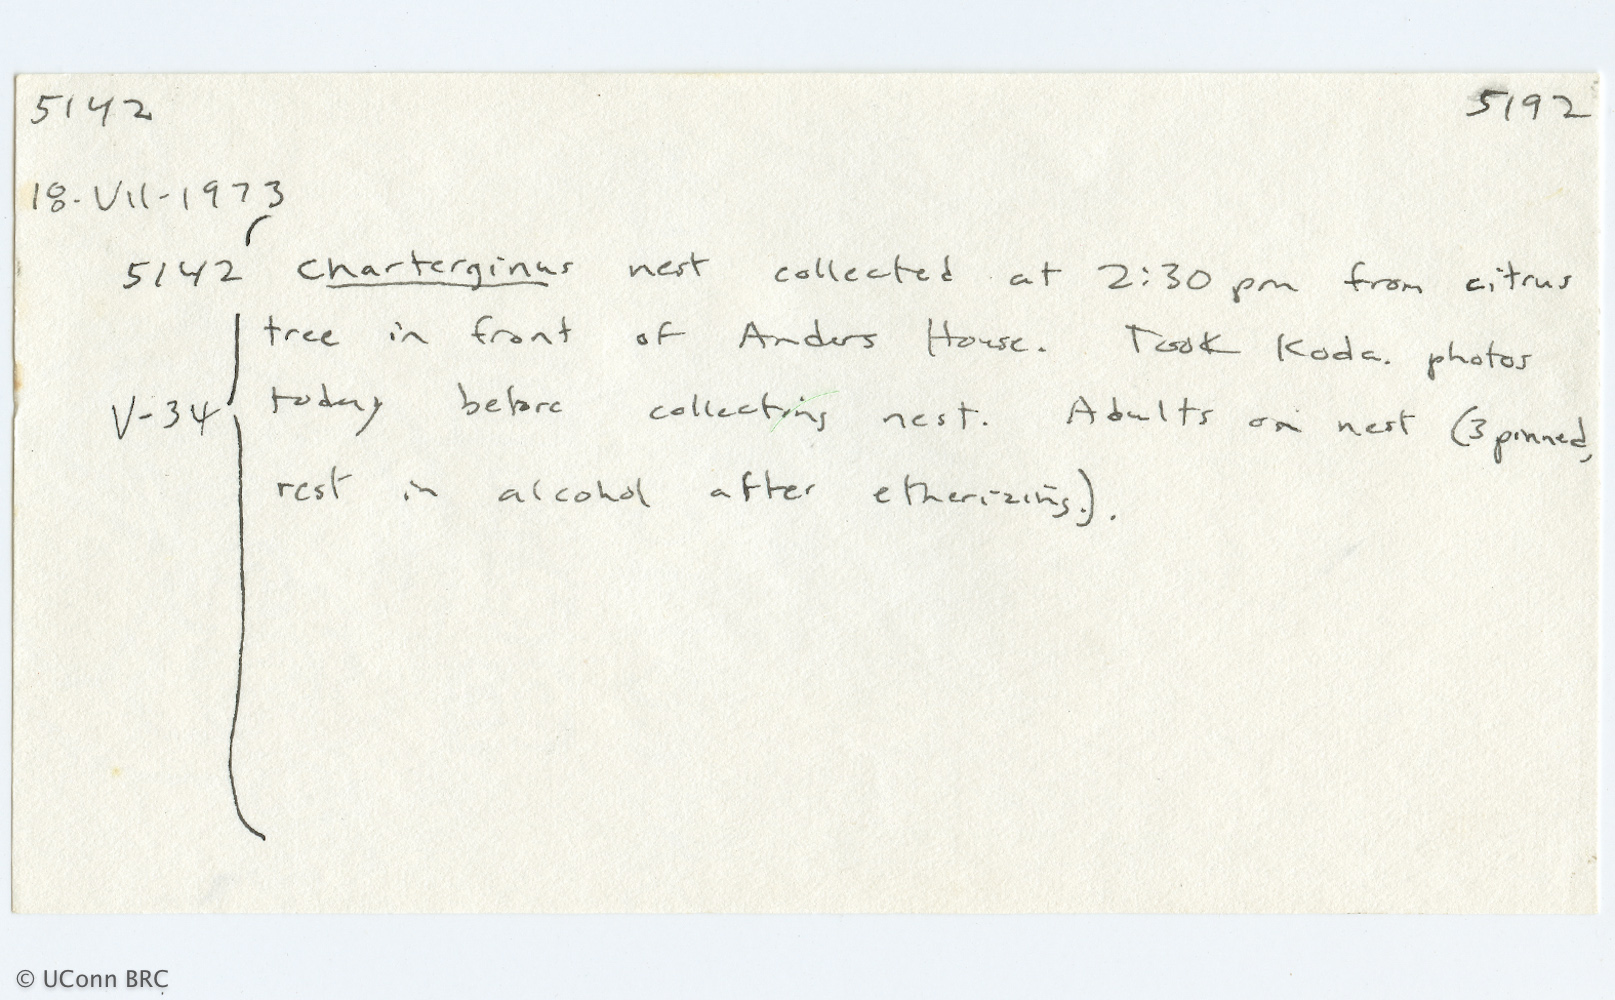 5142 5192
18-VII-1973
5142 Charterginus nest collected at 2:30 pm from citrus
tree in front of Anders House. Took Koda. photos
V-34 today before collecting nest. Adults on nest (3 pinned,
rest in alcohol after etherizing.).
© UConn BRC